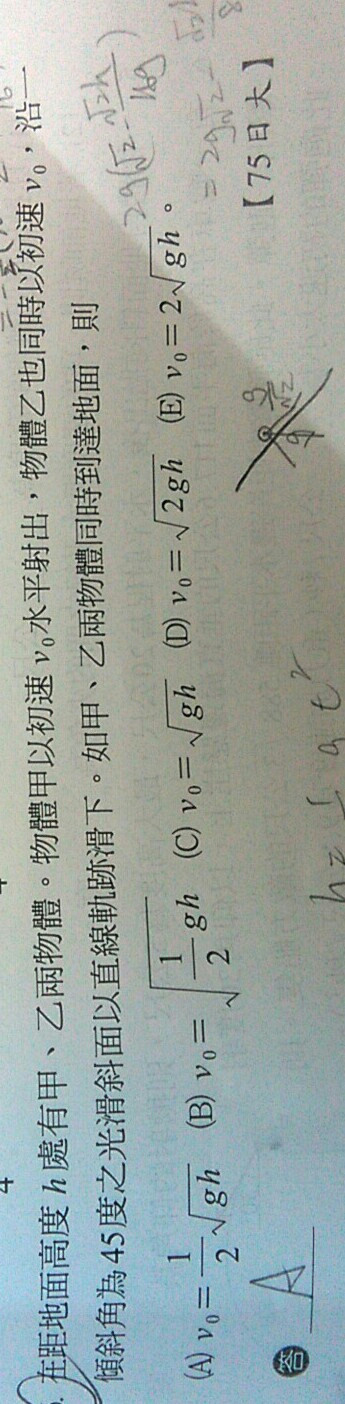 在距地面高度 h 處有甲、乙兩物體。物體甲以初速 v₀水平射出，物體乙也同時以初速 v₀，沿一
傾斜角為45度之光滑斜面以直線軌跡滑下。如甲、乙兩物體同時到達地面，則
(A) v₀=1/2√gh (B) v₀=√(1/2 gh) (C) v₀=√gh (D) v₀=√2gh (E) v₀=2√gh。
【75日大】
答 A